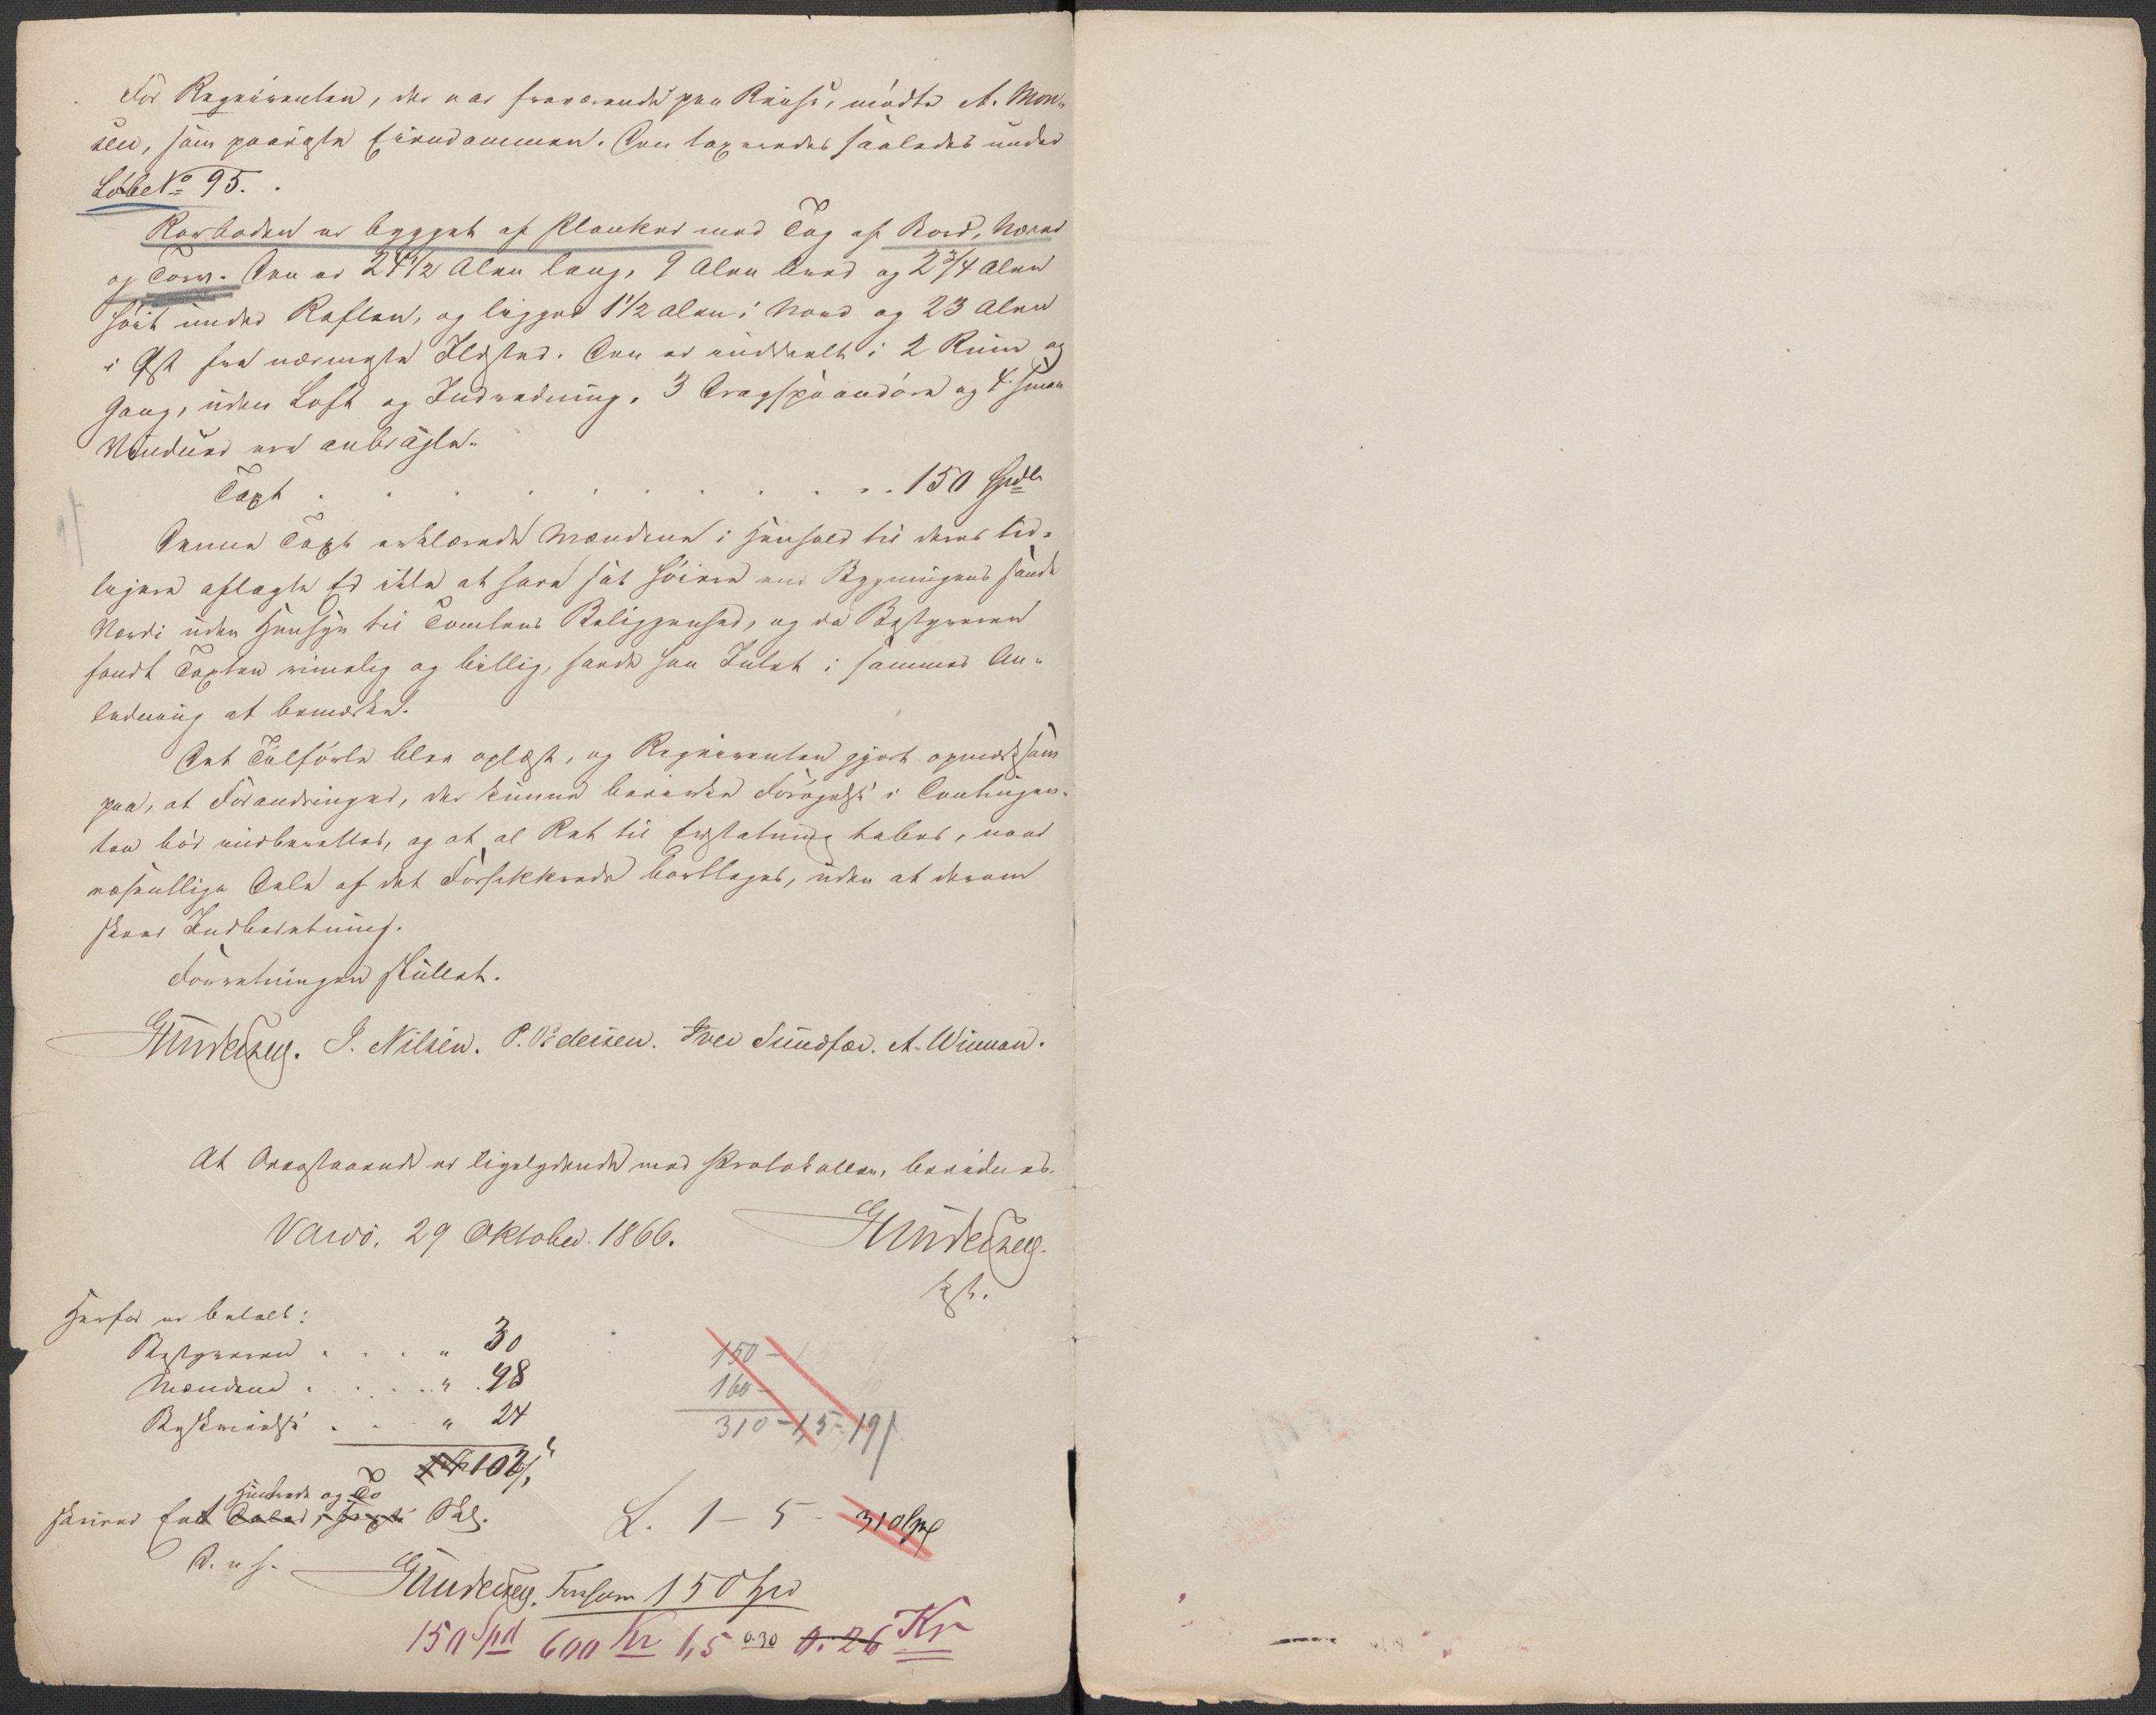 For Reqvirenten, der var fraværende paa Reise, mødte A. Mon-
sen, som paaviste Eiendommen. Den taxeredes saaledes under
Løbe No 95.
Rorboden er bygget af Planker med Tag af Bord, Næver
og Torv. Den er 24 1/2 Alen lang, 9 Alen bred og 2 3/4 Alen
høit under Raften, og ligger 1 1/2 Alen i Nord og 23 Alen
i Øst fra nærmeste Ildsted. Den er inddeelt i 2 Rum og
Gang, uden Loft og Indredning. 3 Dragspaandøre og 4 smaa
Vinduer ere anbragte.
Taxt . . . . . . . . . . 150 Spdlr
Denne Taxt erklærede Mændene i Henhold til deres tid-
ligere aflagte Ed ikke at have sat høiere end Bygningens sande
Værdi uden Hensyn til Tomtens Beliggenhed, og da Bestyreren
fandt Taxten rimelig og billig, havde han Intet i sammes An-
ledning at bemærke.
Det Tilførte blev oplæst, og Reqvirenten gjort opmærksom
paa, at Forandringer, der kunne bevirke Forøgelse i Contingen-
ten bør indberettes, og at al Ret til Erstatning tabes, naar
væsentlige Dele af det Forsikkrede borttages, uden at derom
skeer Indberetning.
Forretningen sluttet.
Gundersen. J. Nilsen. P. Pedersen. Iver Sundfær. A. Wiman.
At Ovenstaaende er ligelydende med Protokollen, bevidnes.
Vardø, 29 Oktober 1866. Gundersen
kst.
Herfor er betalt:
Bestyreren . . . " 30
Mændene . . . . " 48
Beskrivelse . . . " 24
102 s
Hundrede og To
skriver Eet Daler, Skl.
D. u. s.
Gundersen. Forsom 150 Spd
150 -
160 -
310 - 15 - 19
L. 1 - 5 - 310 Spd
150 Spd 600 Kr 1,5 0.30 0.26 Kr